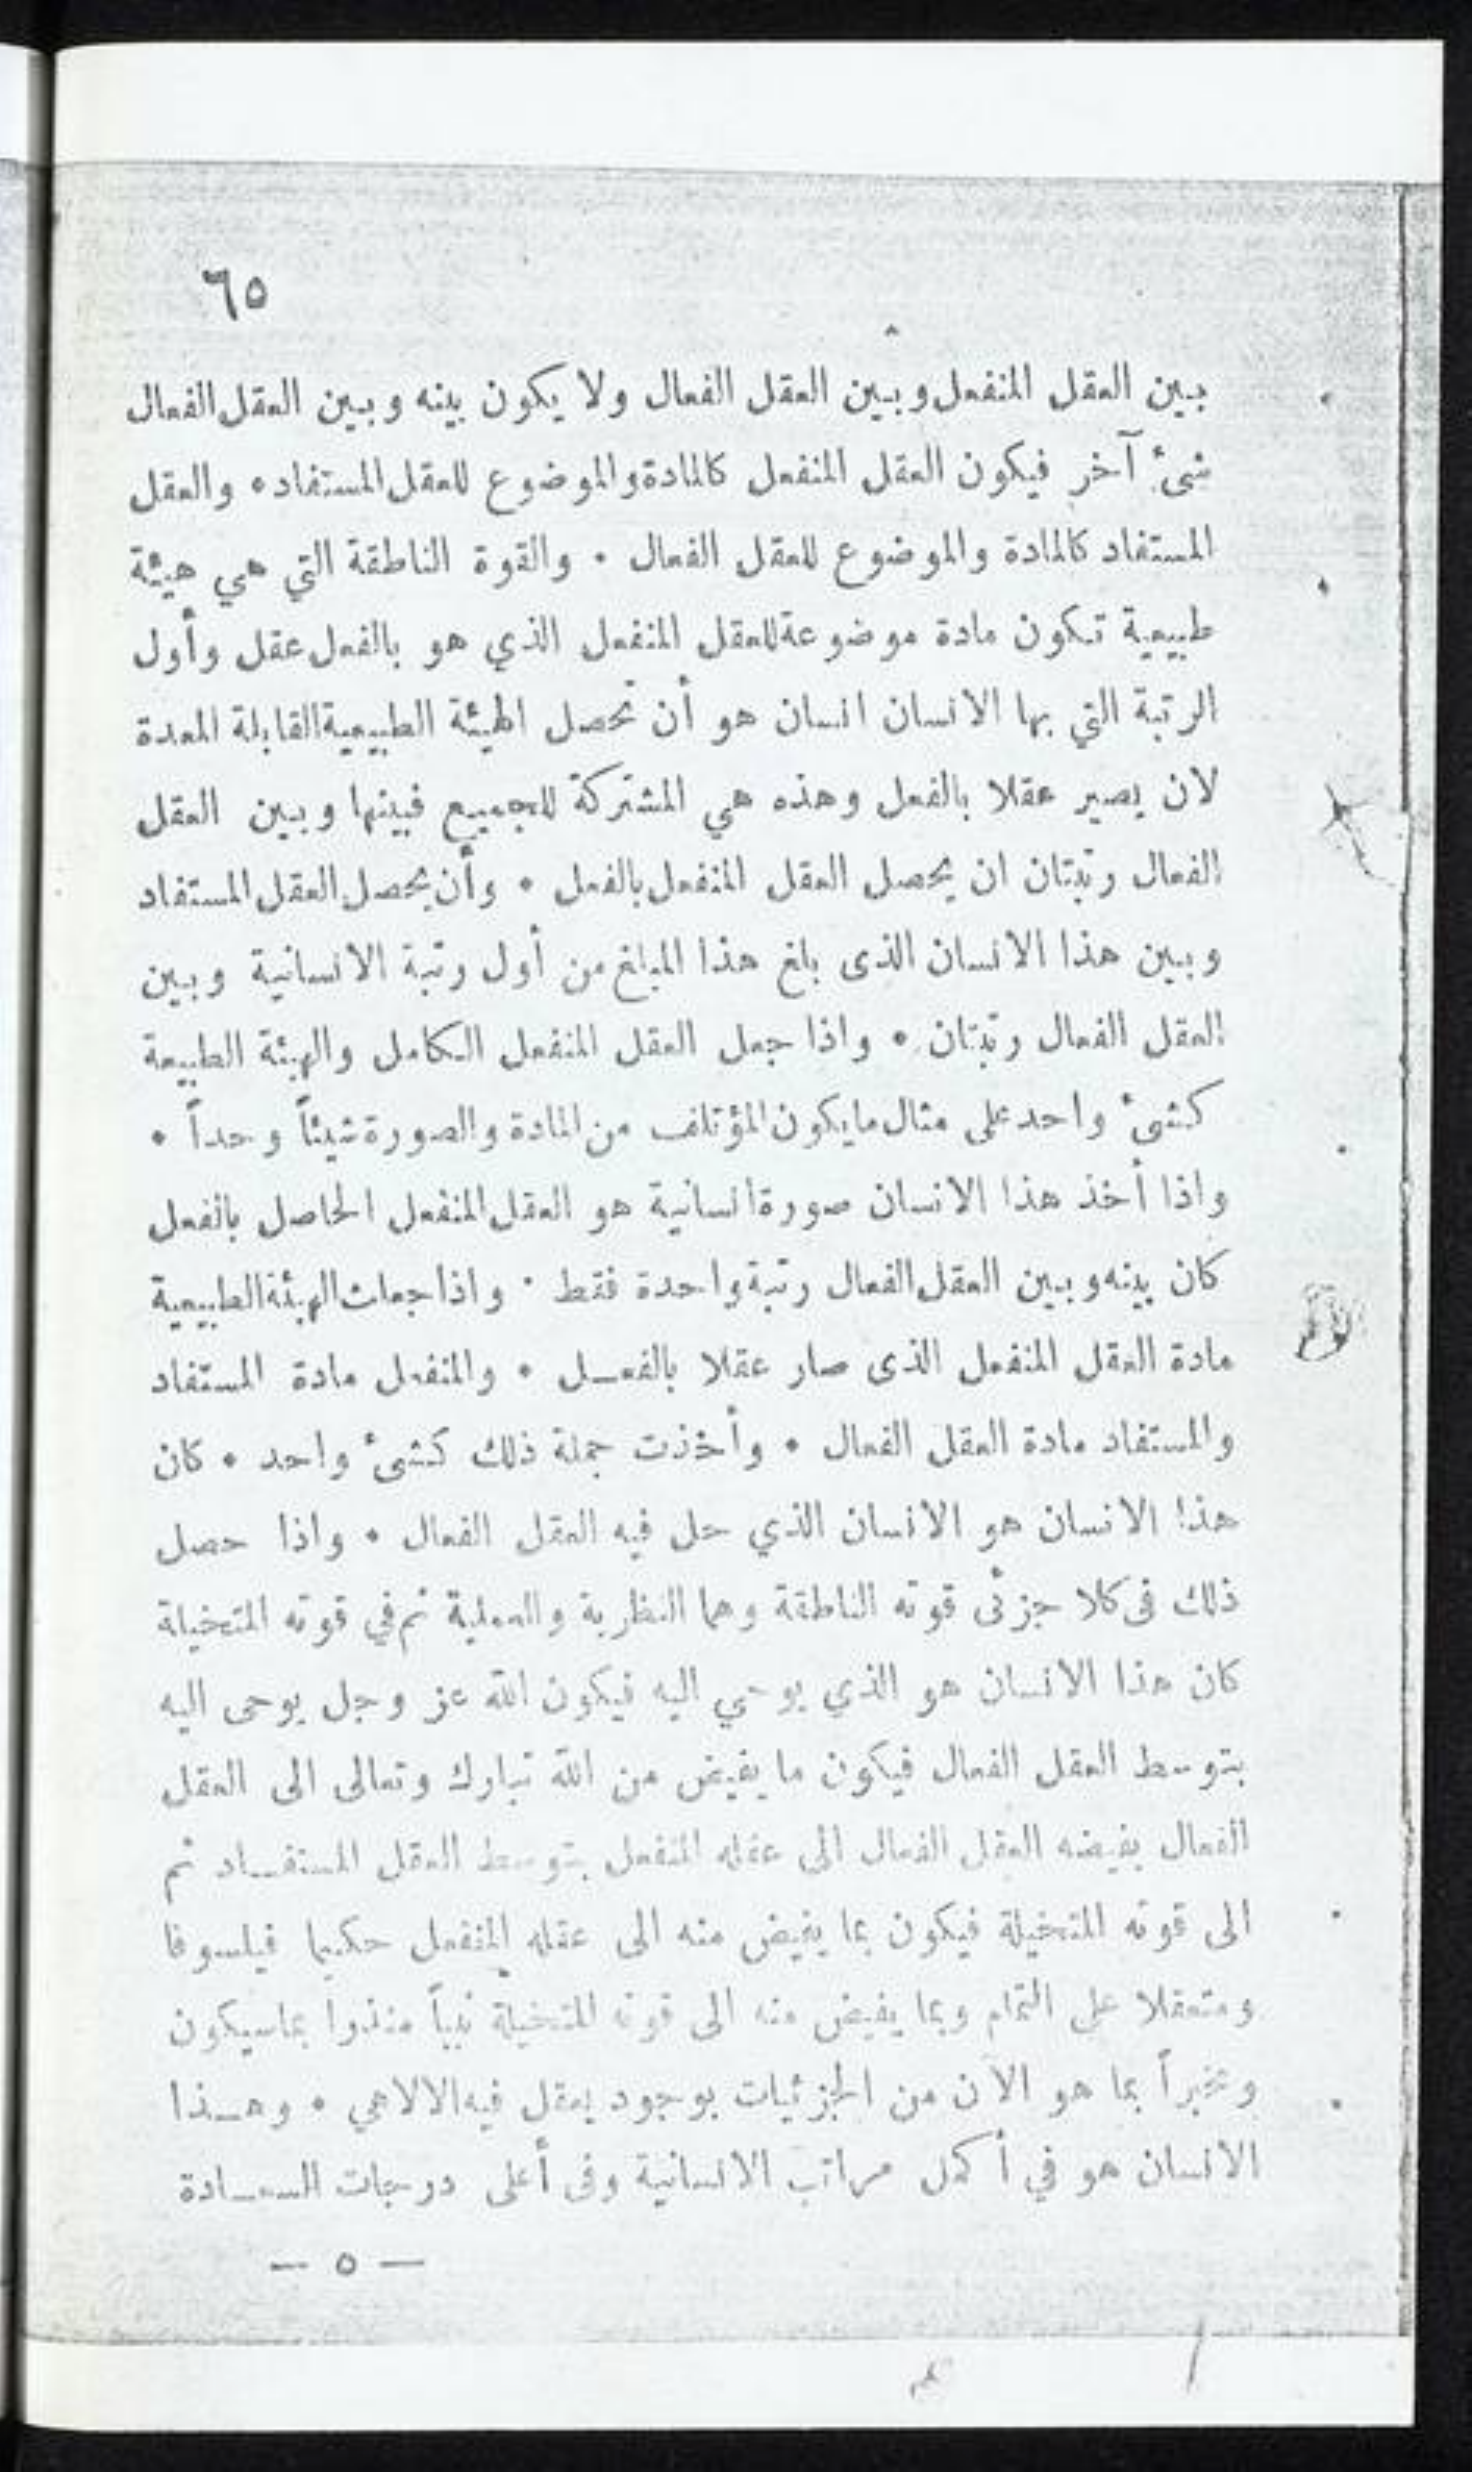 ٦٥
بين العقل المنفعل وبين العقل الفعال ولا يكون بينه وبين العقل الفعال
شئ آخر فيكون العقل المنفعل كالمادة والموضوع للعقل المستفاد ٠ والعقل
المستفاد كالمادة والموضوع للعقل الفعال ٠ والقوة الناطقة التي هي هيئة
طبيعية تكون مادة موضوعة للعقل المنفعل الذي هو بالفعل عقل وأول
الرتبة التي بها الانسان انسان هو أن تحصل الهيئة الطبيعية القابلة المعدة
لان يصير عقلا بالفعل وهذه هي المشتركة للجميع فبينها وبين العقل
الفعال رتبتان ان يحصل العقل المنفعل بالفعل ٠ وأن يحصل العقل المستفاد
وبين هذا الانسان الذى بلغ هذا المبلغ من أول رتبة الانسانية وبين
العقل الفعال رتبتان ٠ واذا جعل العقل المنفعل الكامل والهيئة الطبيعة
كشئ واحد على مثال ما يكون المؤتلف من المادة والصورة شيئاً وحداً ٠
واذا أخذ هذا الانسان صورة انسانية هو العقل المنفعل الحاصل بالفعل
كان بينه وبين العقل الفعال رتبة واحدة فقط ٠ واذا جعلت الهيئة الطبيعية
مادة العقل المنفعل الذى صار عقلا بالفعل ٠ والمنفعل مادة المستفاد
والمستفاد مادة العقل الفعال ٠ وأخذت جملة ذلك كشئ واحد ٠ كان
هذا الانسان هو الانسان الذي حل فيه العقل الفعال ٠ واذا حصل
ذلك فى كلا جزئى قوته الناطقة وهما النظرية والعملية ثم في قوته المتخيلة
كان هذا الانسان هو الذي يوحي اليه فيكون الله عز وجل يوحى اليه
بتوسط العقل الفعال فيكون ما يفيض من الله تبارك وتعالى الى العقل
الفعال يفيضه العقل الفعال الى عقله المنفعل بتوسط العقل المستفاد ثم
الى قوته المتخيلة فيكون بما يفيض منه الى عقله المنفعل حكيما فيلسوفا
ومتعقلا على التمام وبما يفيض منه الى قوته المتخيلة نبياً منذرا بما سيكون
ومخبراً بما هو الآن من الجزئيات بوجود يعقل فيه الالاهي ٠ وهذا
الانسان هو في أكمل مراتب الانسانية وفى أعلى درجات السعادة
— ٥ —